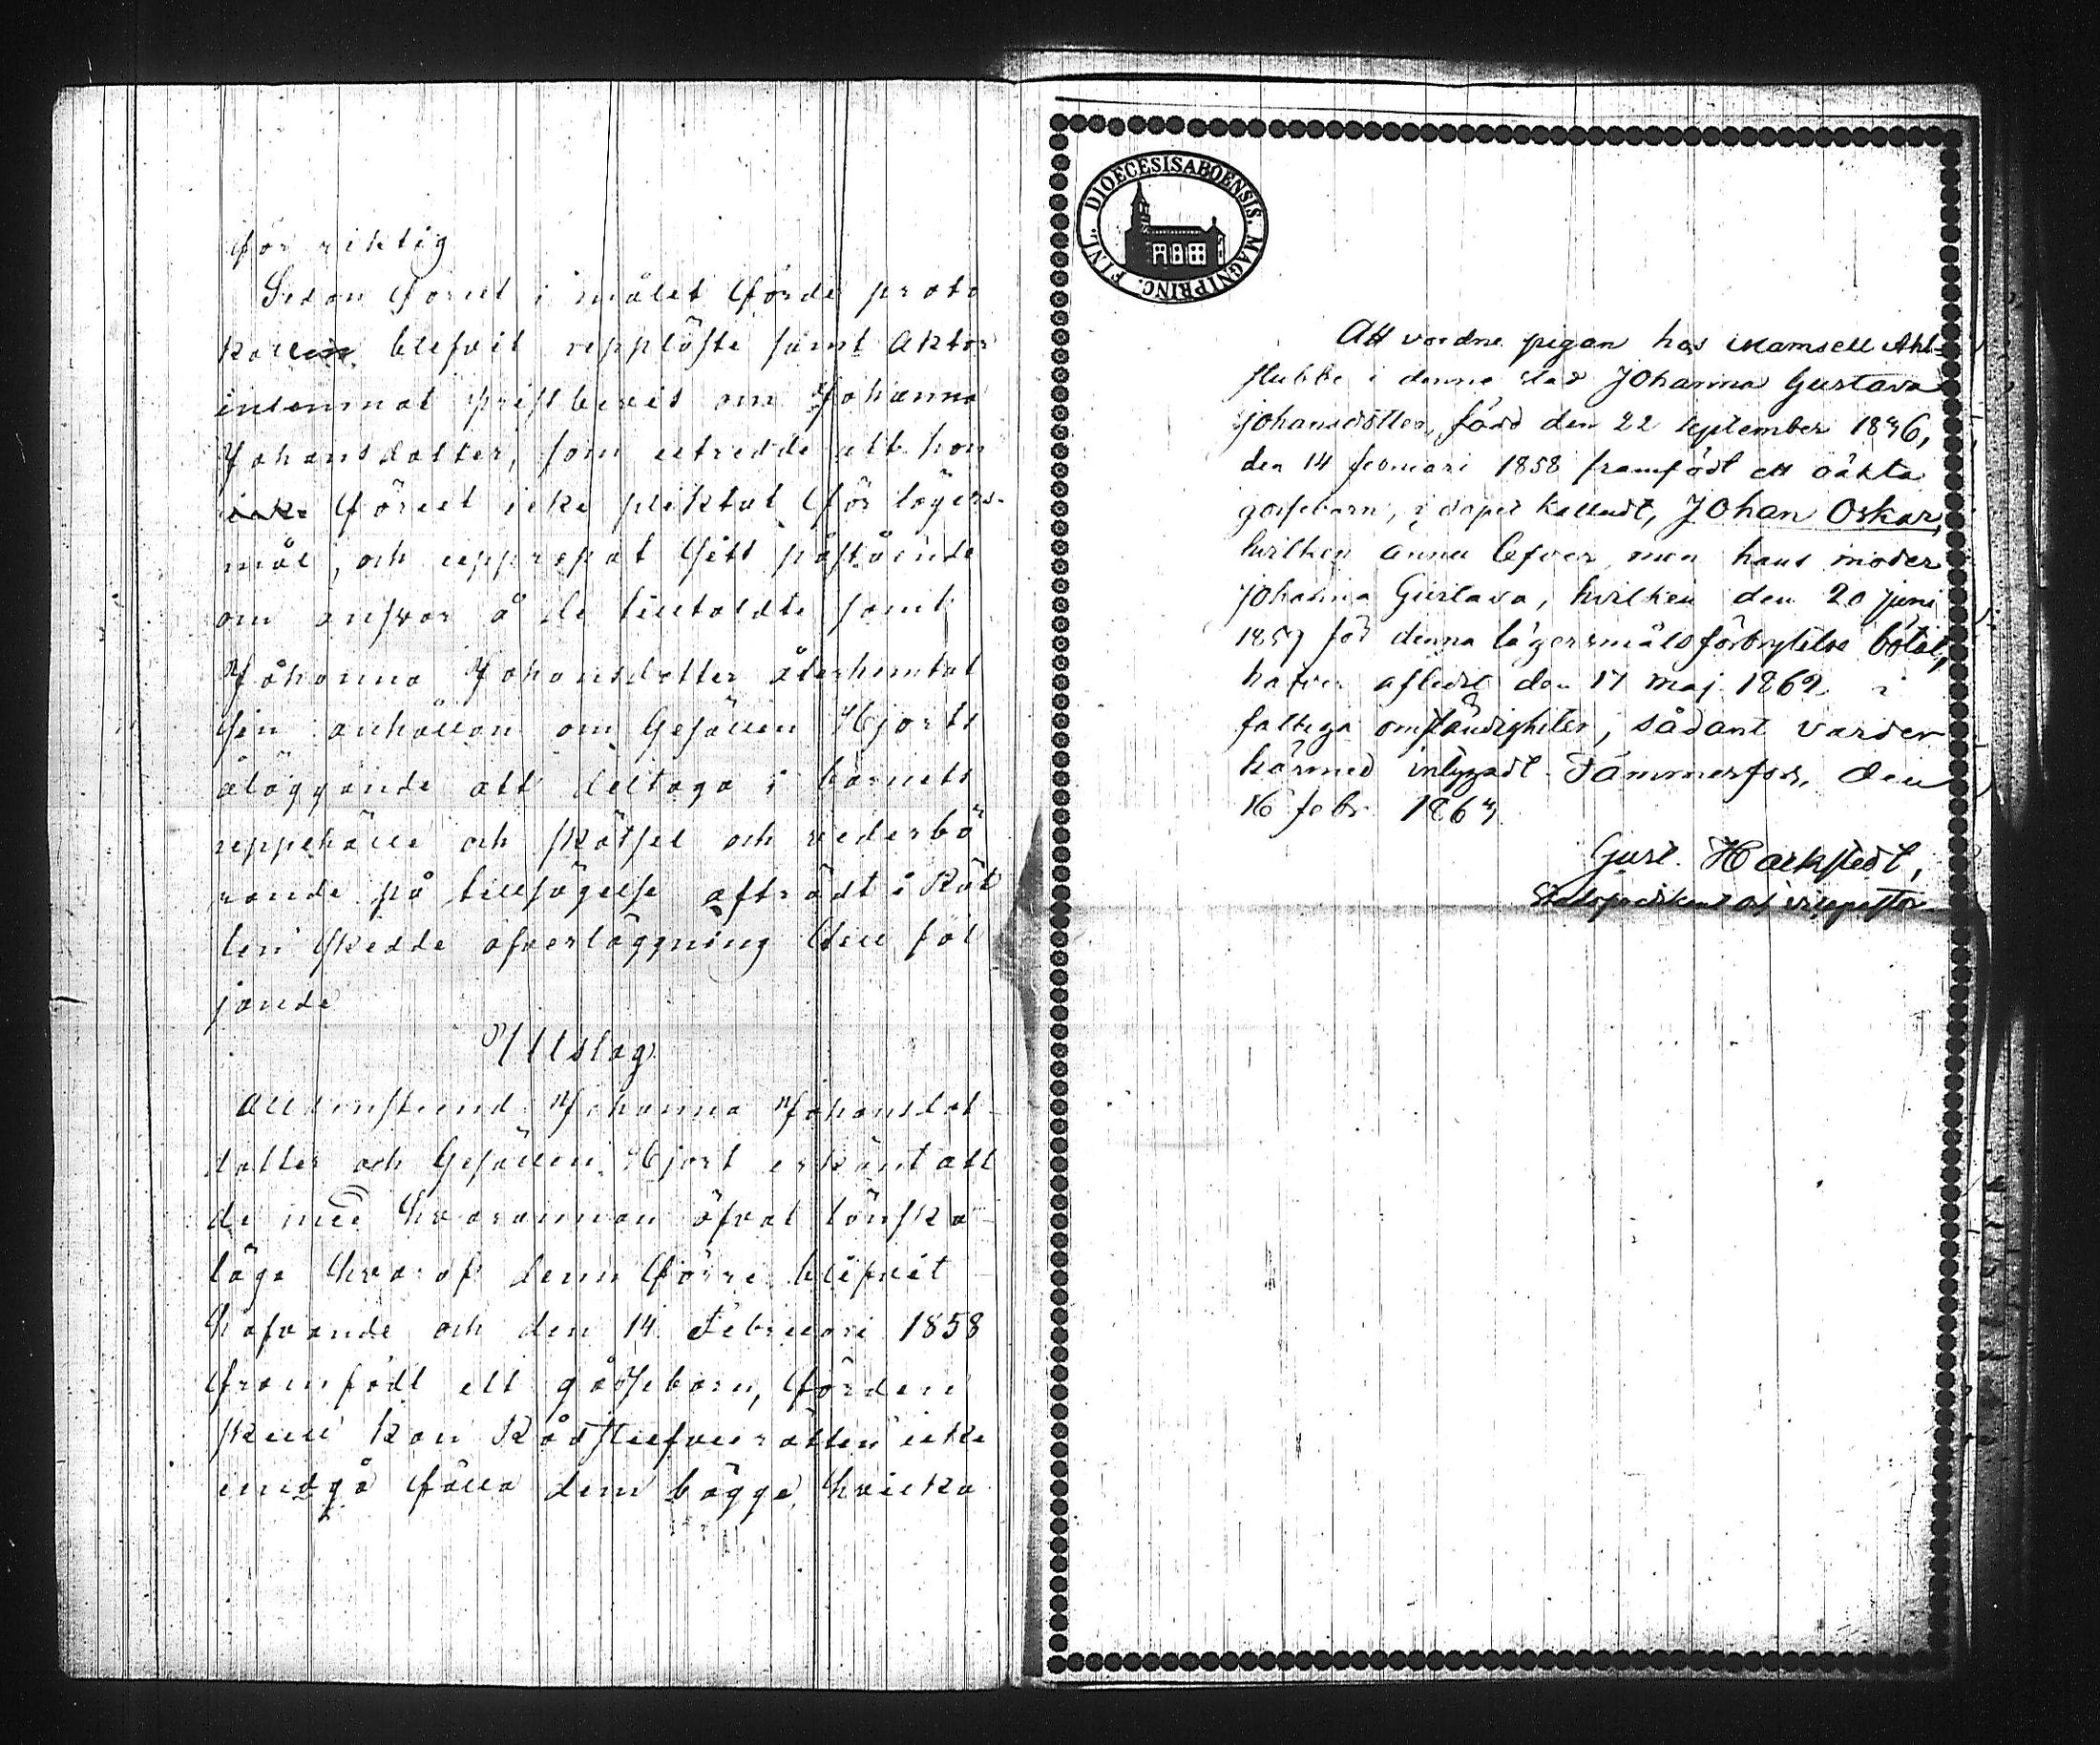 för riktig
Sedan förut i målet förde proto
kollen blefvit uppläste samt Aktor
inlemnat prestbevis om Johanna
Johansdotter, som utredde att hon
icke förut icke pliktat för lägers-
mål, och upprepat sitt påstående
om ansvar å de tilltaldte samt
Johanna Johansdotter återhemtat
sin anhållan om Gesällen Hjorts
åläggande att deltaga i barnets
uppehälle och skötsel och vederbö
rande på tillsägelse afträdt i Rät
ten skedde öfverläggning till föl
jande
Utslag
Alldenstund Johanna Johansdot
dotter och Gesällen Hjort erkänt att
de med hvarannan öfvat lönska
läge hvaraf denn förre blifvit
hafvande och den 14 Februari 1858
framfödt ett gåssebarn, förden
skull kan Rådstufvurätten icke
undgå fälla dem bägge, hvilka
DIOECESIS ABOENSIS. MAGNI PRINC. FINL.
Att vordne pigan hos Mamsell Ahl-
stubbe i denne stad Johanna Gustava
Johansdotter, född den 22 September 1836,
den 14 februari 1858 framfödt ett oäkta
gossebarn, i dopet kalladt, Johan Oskar,
hvilken ännu lefver, men hans moder
Johanna Gustava, hvilken den 20 juni
1859 för denna lägersmålsförbrytelse bötat,
hafver aflidit den 17 Maj 1862 i
fattiga omständigheter, sådant varder
härmed intygadt. Tammerfors, den
16 febr. 1864
Gust.